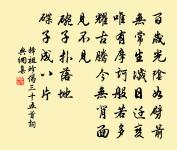 百歲光陰如劈箭
無常生滅日遷變
唯有摩訶般若多
耀古騰今無背面
見不見
碗子扑落地
碟子成八片
釋祖珍偈三十五首詞
典網集